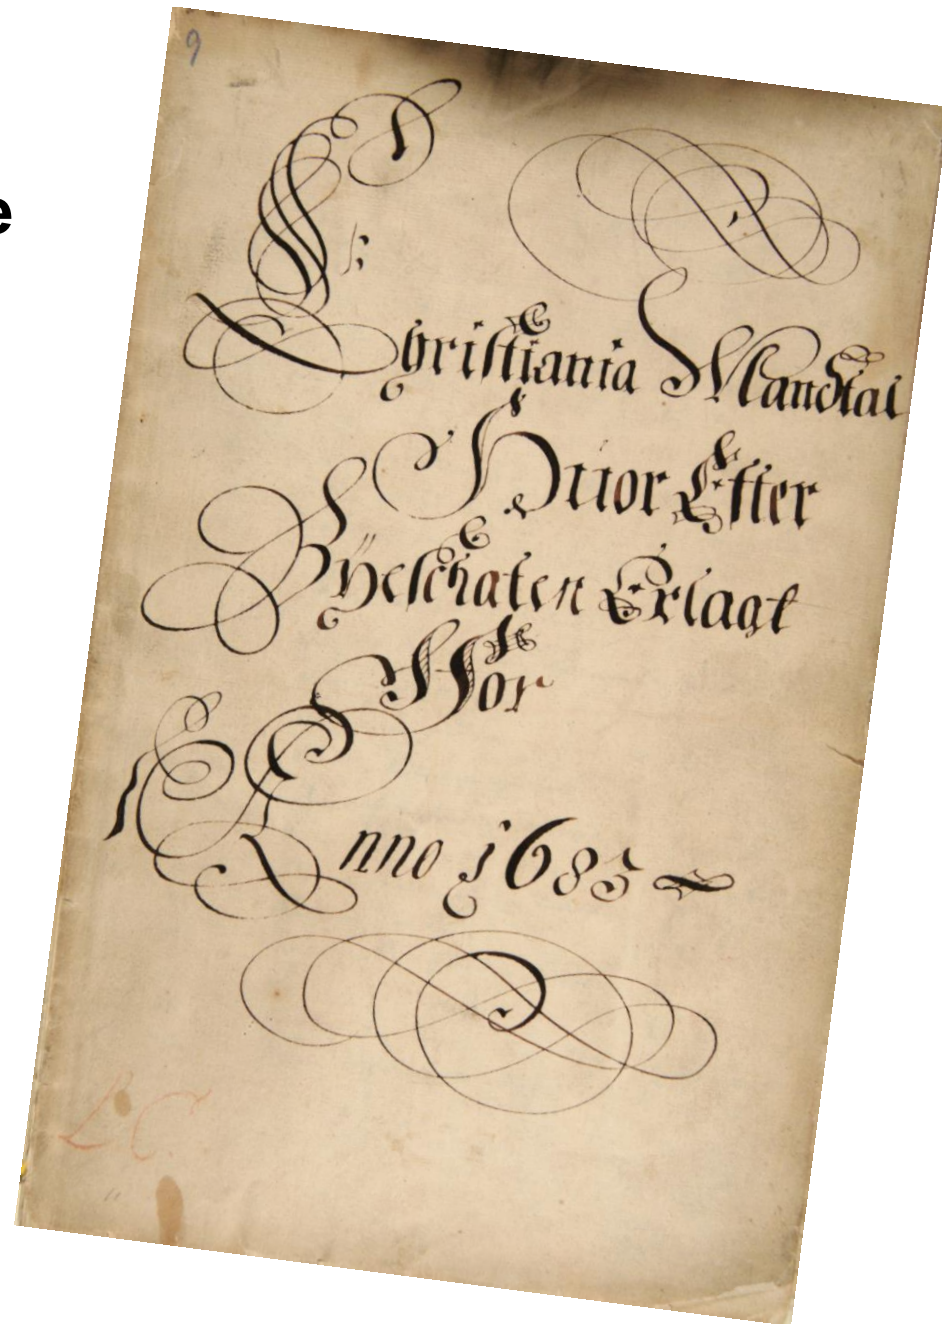 9
e
Christiania Mandtal
Huor Efter
Bÿeschaten Erlagt
ffor
Anno 1683
L C